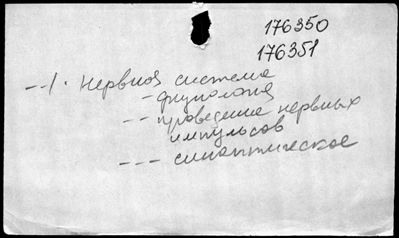 176350
176351
--1. нервная система
- физиология
-- проведение нервных
импульсов
--- синаптическое